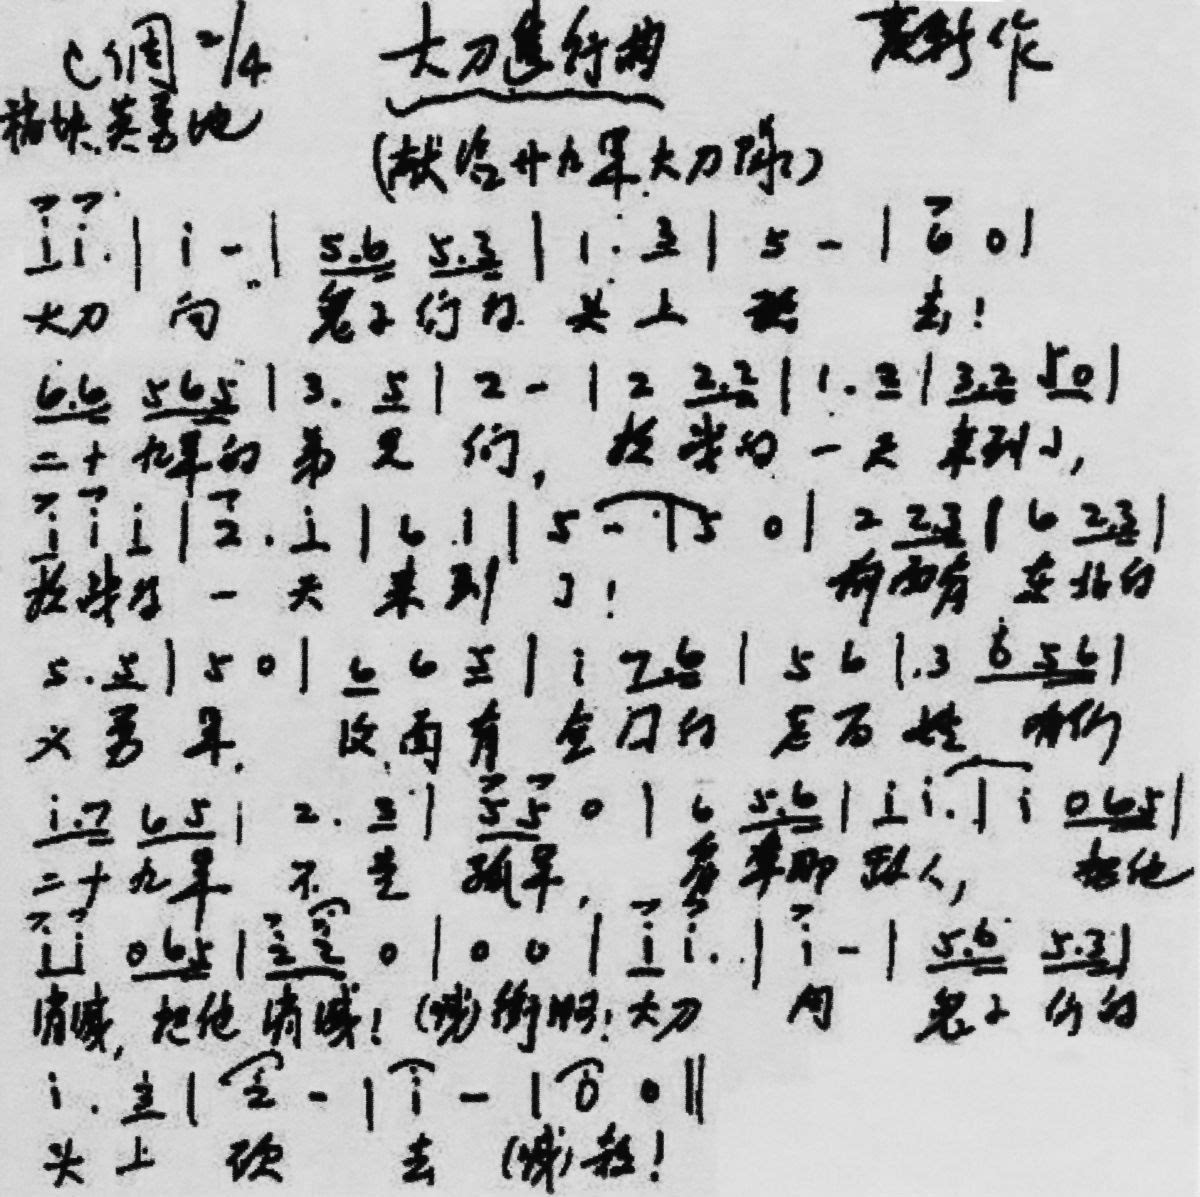 C调 2/4 大刀进行曲 麦新作
稍快.英勇地
(献给廿九军大刀队)
i i. | i - | 5.6 5.3 | 1. 3 | 5 - | 6 0 |
大刀 向 鬼子们的 头上 砍 去!
6.6 565 | 3. 5 | 2 - | 2 2.2 | 1. 2 | 3.2 50 |
二十九军的弟兄们, 抗战的一天来到了,
i i i | 2. i | 6 1 | 5 - | 5 0 | 2 2.3 | 6 2.3 |
抗战的一天来到了! 前面有东北的
5. 5 | 5 0 | 6 6 5 | i 7.6 | 5 6 | .3 6 56 |
义勇军. 后面有全国的老百姓 咱们
i.7 65 | 2. 3 | 55 0 | 6 5.6 | i i. | i 065 |
二十九军不是孤军. 看准那敌人, 把他
i i 065 | 2 2 0 | 0 0 | i i. | i - | 5.6 5.3 |
消灭, 把他消灭! (喊)冲啊! 大刀 向 鬼子们的
i. 3 | 2 - | i - | 0 0 ‖
头上 砍 去 (喊)杀!